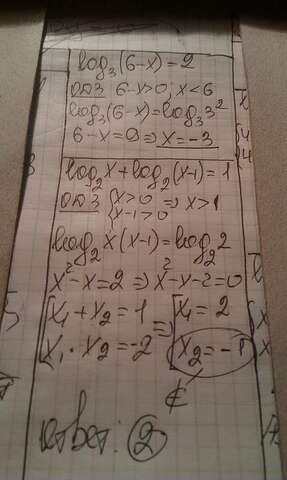 log₃(6-x)=2
ОДЗ 6-x>0; x<6
log₃(6-x)=log₃3²
6-x=9 ⇒ x=-3
log₂x+log₂(x-1)=1
ОДЗ {x>0 ⇒ x>1
{x-1>0
log₂x(x-1)=log₂2
x²-x=2 ⇒ x²-x-2=0
[x₁+x₂=1 ⇒ [x₁=2
x₁·x₂=-2 x₂=-1
∉
Ответ: 2